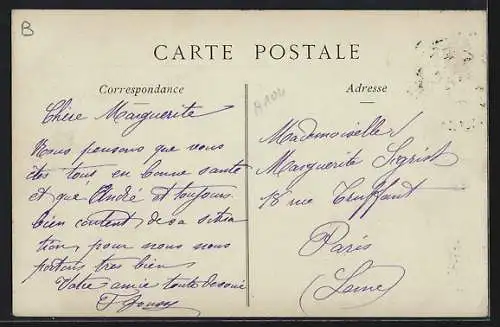 B
CARTE POSTALE
Correspondance
Adresse
A104
Chère Marguerite
Nous pensons que vous
êtes tous en bonne santé
et que André est toujours
bien content de sa situa
tion, pour nous nous
portons tres bien
Votre amie toute devouée
Mademoiselle
Marguerite Sigrist
18 rue Truffaut
Paris
(Seine)